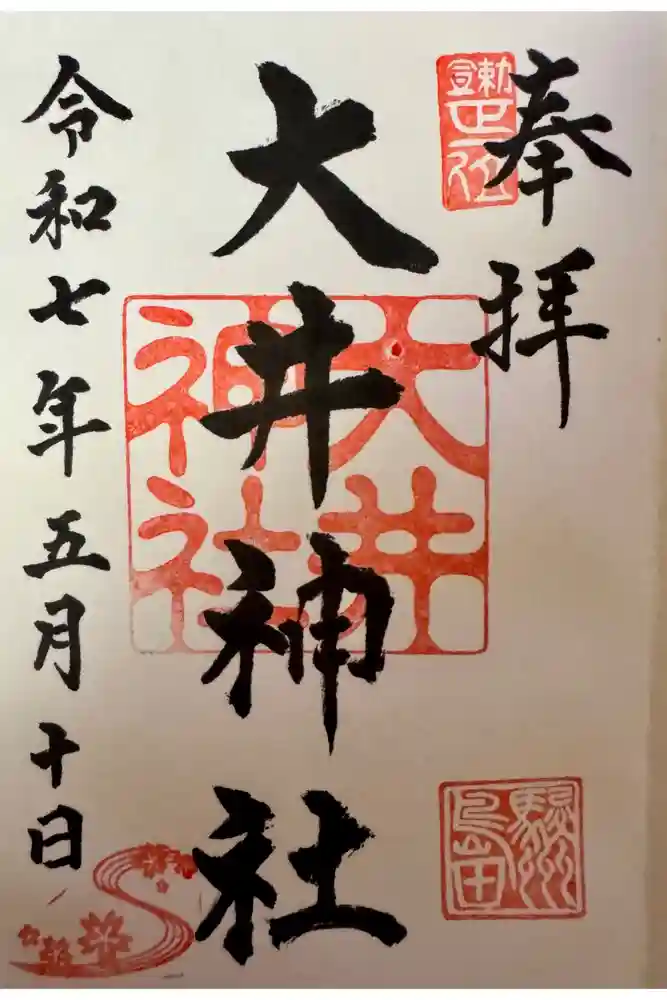 奉拝
勅宣正一位
駿州島田
大井神社
大井神社
令和七年五月十日